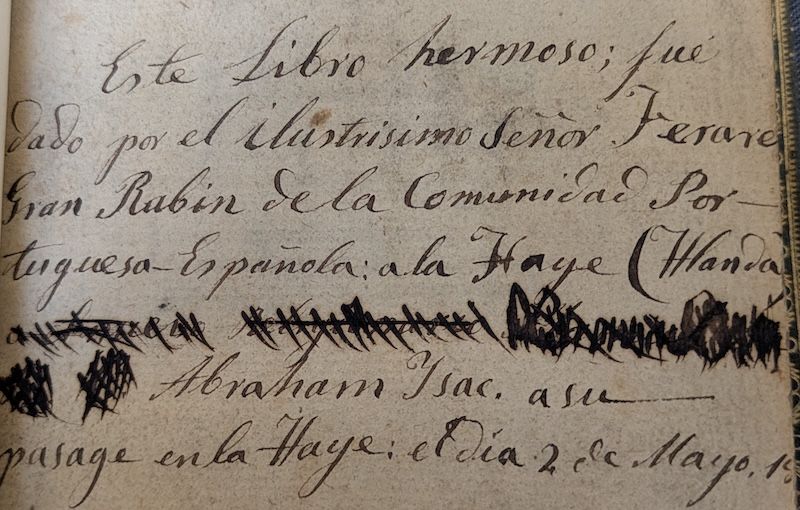 Este Libro hermoso; fué
dado por el ilustrisimo Señor Ferare
Gran Rabin de la Comunidad Por-
tuguesa-Española: a la Haye (
Abraham Ysac. a su
pasage en la Haye: el dia 2 de Mayo. 18